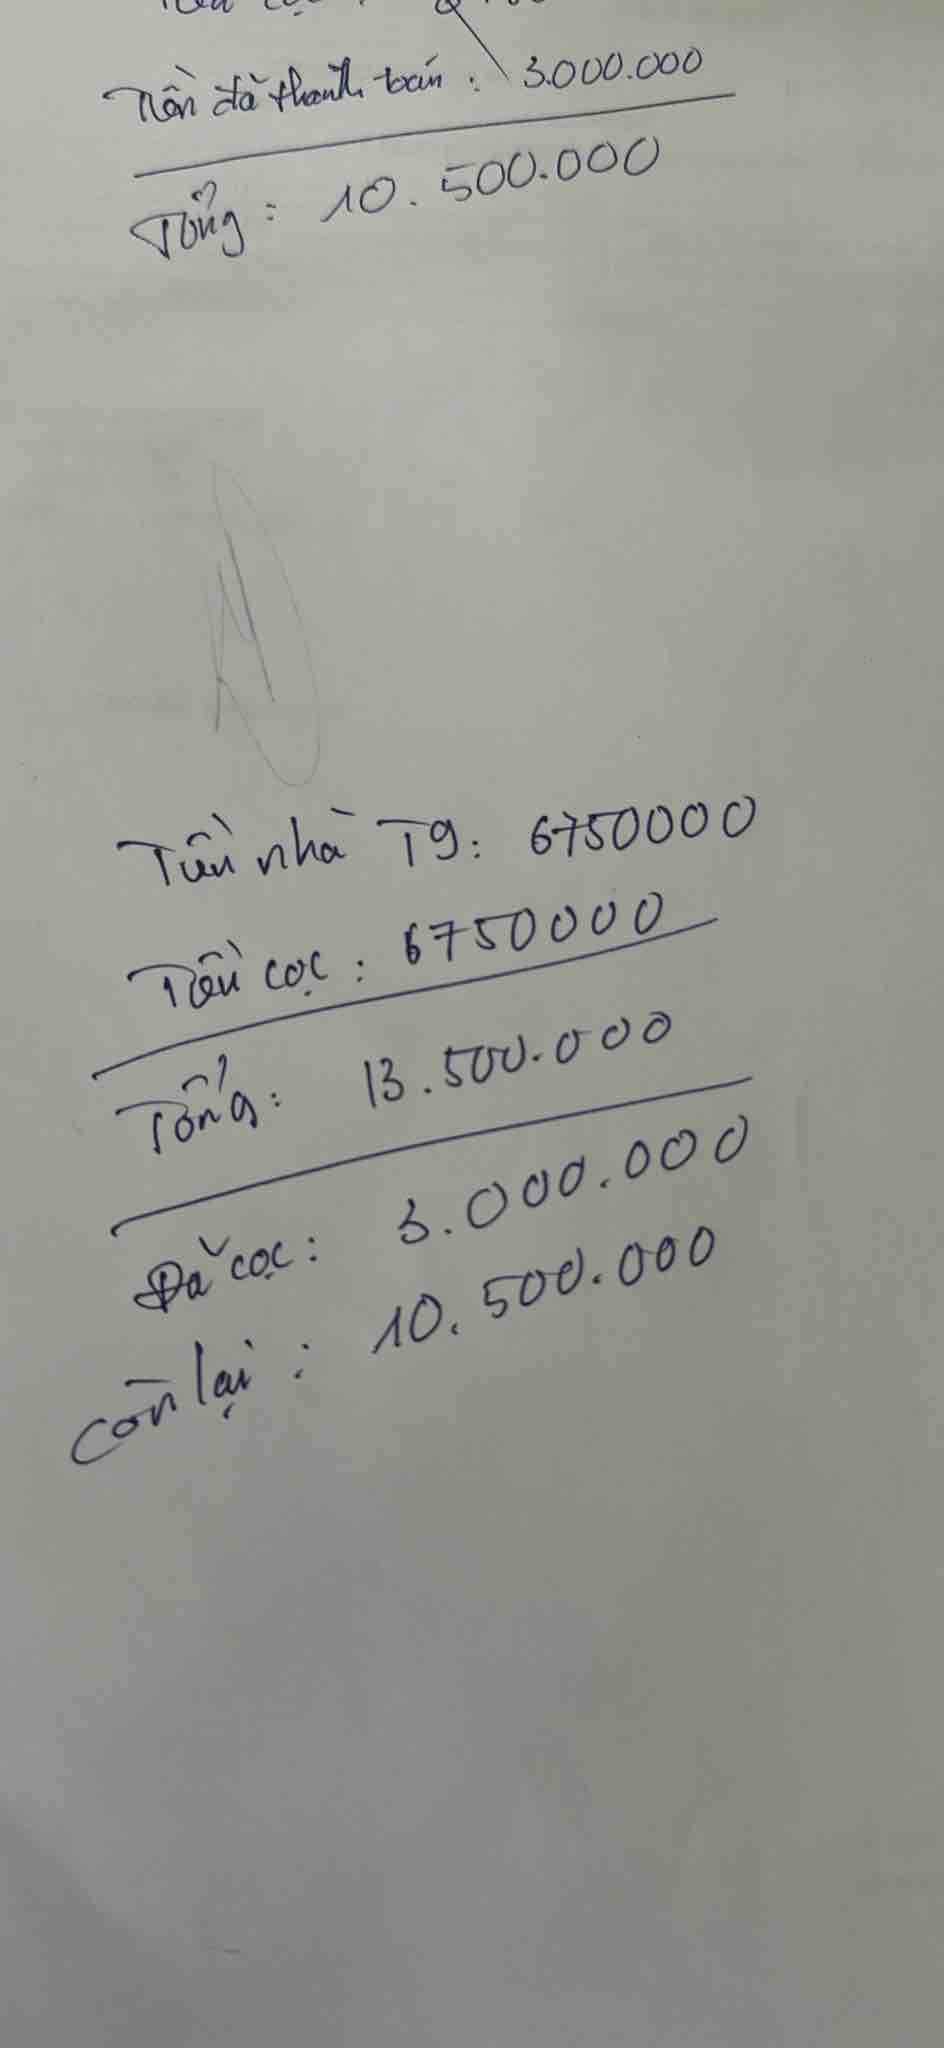 Tiền đã thanh toán : 3.000.000
Tổng : 10.500.000
Tiền nhà T9: 6750000
Tiền cọc : 6750000
Tổng: 13.500.000
Đã cọc: 3.000.000
còn lại : 10.500.000